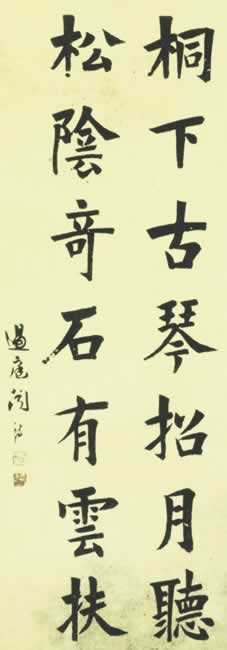 桐下古琴招月聽
松陰竒石有雲扶
過庭